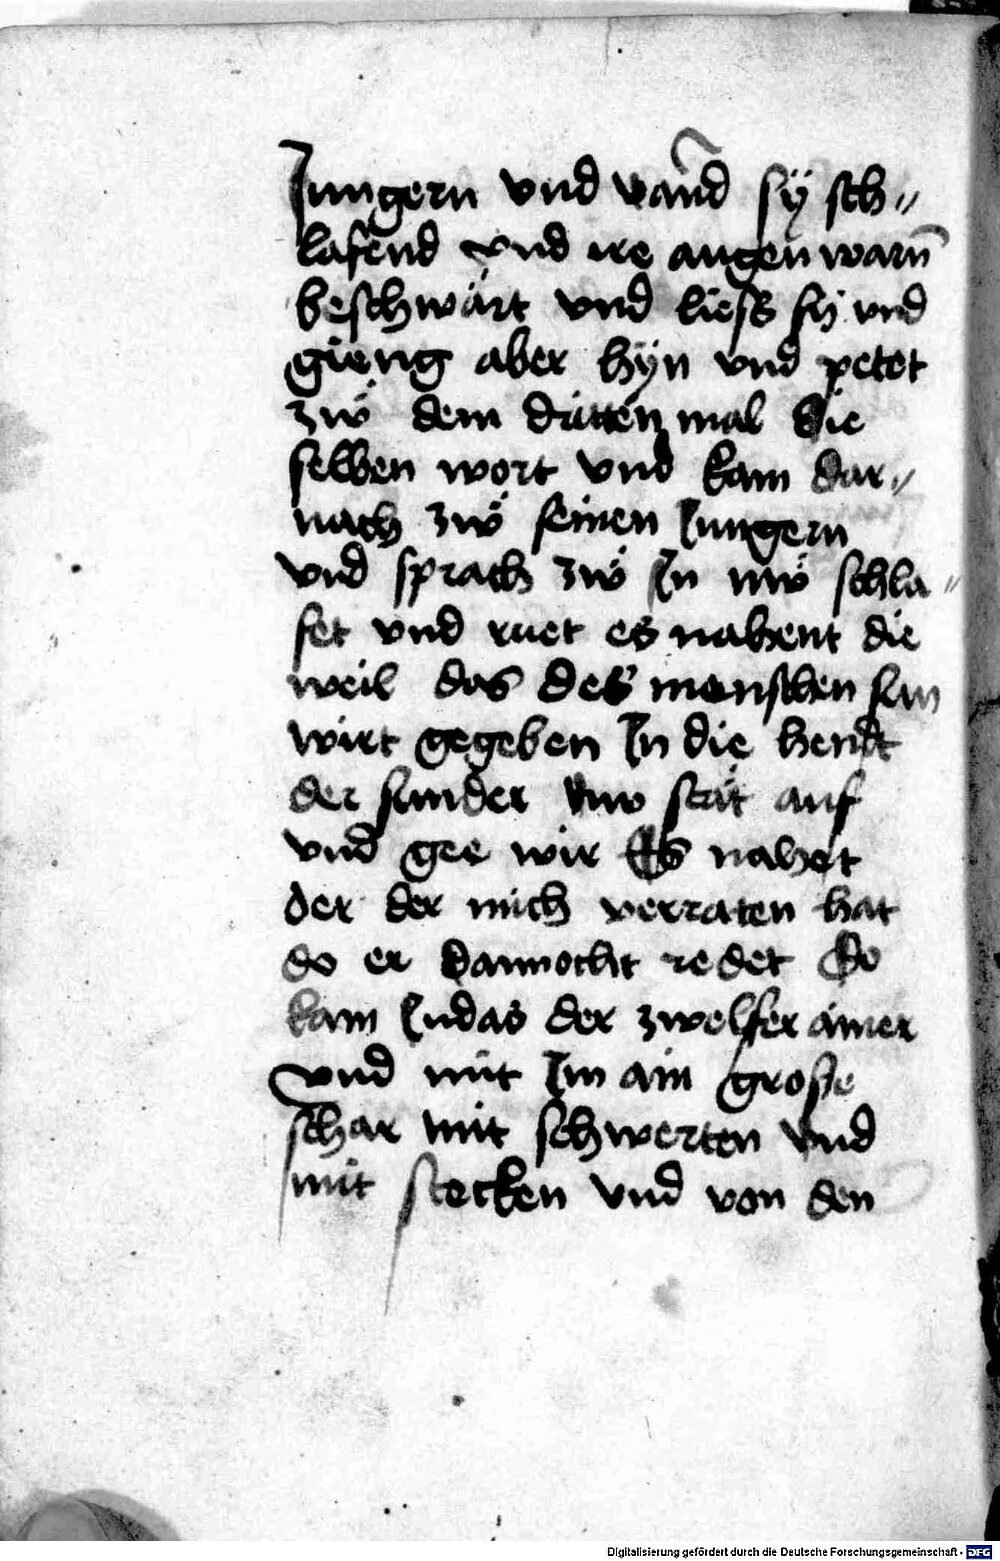 Jungern vnd vand sÿ sch〃
lafend vnd ire augen warn̄
beschwärt vnd liess sÿ vnd
gieng aber hÿn vnd petet
zwͦ dem dritten mal die
selben wort vnd kam dar〃
nach zwͦ seinen Jungern
vnd sprach zwͦ In nwͦ schla〃
fet vnd ruet es nahent die
weil das des menschen sun
wirt gegeben In die hendt
der sunder nw stät auf
vnd gee wir Es nahet
der der mich verraten hat
do er dannocht redet Do
kam Judas der zwelfer ainer
vnd mit Im ain grosse
schar mit schwerten vnd
mit stecken vnd von den
Digitalisierung gefördert durch die Deutsche Forschungsgemeinschaft - DFG